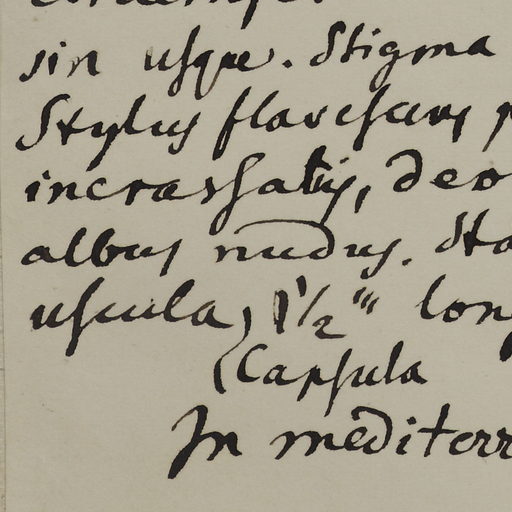 sin usque. Stigma
Stylus flavescens
incrassatus, deo
albus nudus. Sta
uscula, 1½‴ long
(Capsula
In mediterr